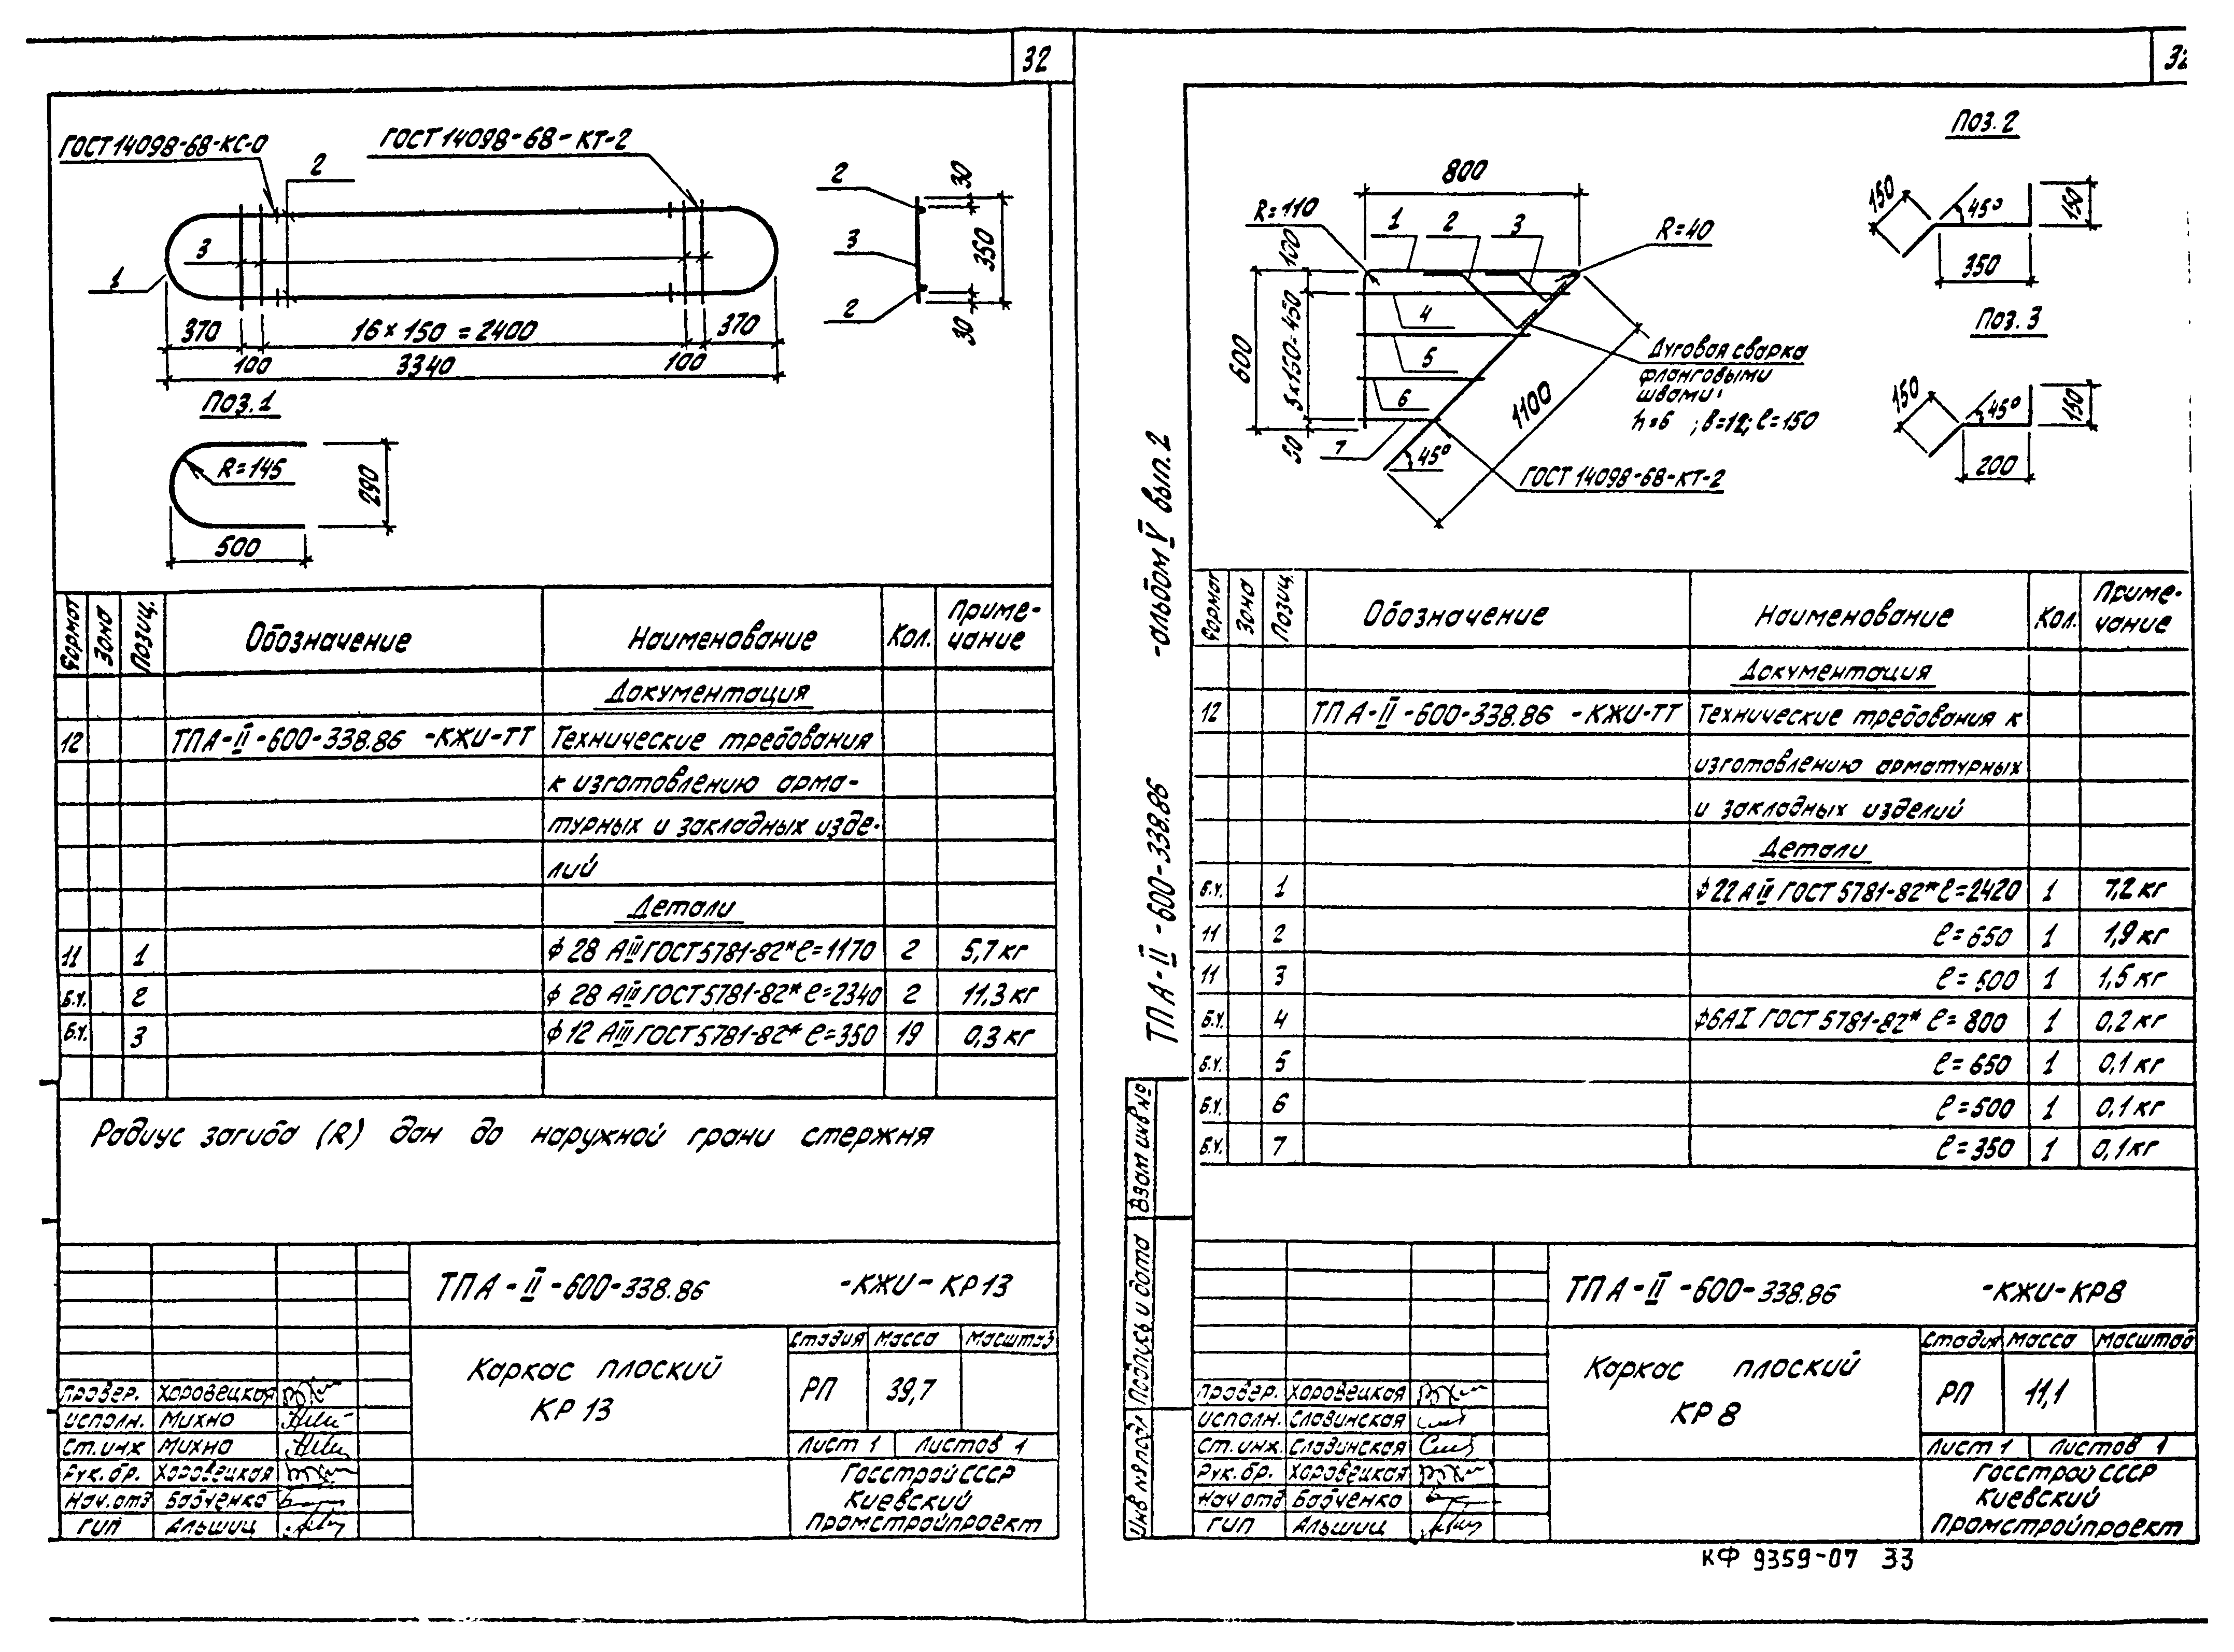 32
ГОСТ 14098-68-КС-О
ГОСТ 14098-68-КТ-2
2
3
1
370
16×150=2400
370
100
3340
100
2
3
2
30
350
30
Поз.1
R=145
290
500
Формат Зона Позиц. Обозначение Наименование Кол. Приме-
чание
Документация
12 ТП А-II-600-338.86 -КЖИ-ТТ Технические требования
к изготовлению арма-
турных и закладных изде-
лий
Детали
11 1 ϕ28 АIII ГОСТ 5781-82* ℓ=1170 2 5,7 кг
Б.Ч. 2 ϕ28 АIII ГОСТ 5781-82* ℓ=2340 2 11,3 кг
Б.Ч. 3 ϕ12 АIII ГОСТ 5781-82* ℓ=350 19 0,3 кг
Радиус загиба (R) дан до наружной грани стержня
ТП А-II-600-338.86 -КЖИ-КР13
Каркас плоский
КР 13
Стадия Масса Масштаб
РП 39,7
Лист 1 Листов 1
Госстрой СССР
Киевский
Промстройпроект
Провер. Хоровецкая
Исполн. Михно
Ст.инж Михно
Рук.бр. Хоровецкая
Нач.отд Бабченко
ГИП Альшиц
32
Поз.2
150
45°
150
350
Поз.3
150
45°
150
200
800
R=110
1
2
3
R=40
100
600
3×150=450
50
4
5
6
7
45°
1100
Дуговая сварка
фланговыми
швами:
h=6 ; в=12; ℓ=150
ГОСТ 14098-68-КТ-2
ТП А-II-600-338.86 -альбом V вып.2
Формат Зона Позиц. Обозначение Наименование Кол. Приме-
чание
Документация
12 ТП А-II-600-338.86 -КЖИ-ТТ Технические требования к
изготовлению арматурных
и закладных изделий
Детали
Б.Ч. 1 ϕ22 АIII ГОСТ 5781-82* ℓ=2420 1 7,2 кг
11 2 ℓ=650 1 1,9 кг
11 3 ℓ=500 1 1,5 кг
Б.Ч. 4 ϕ6АI ГОСТ 5781-82* ℓ=800 1 0,2 кг
Б.Ч. 5 ℓ=650 1 0,1 кг
Б.Ч. 6 ℓ=500 1 0,1 кг
Б.Ч. 7 ℓ=350 1 0,1 кг
Взам инв №
Подпись и дата
Инв № подл
ТП А-II-600-338.86 -КЖИ-КР8
Каркас плоский
КР 8
Стадия Масса Масштаб
РП 11,1
Лист 1 Листов 1
Госстрой СССР
Киевский
Промстройпроект
Провер. Хоровецкая
Исполн. Славинская
Ст.инж. Славинская
Рук.бр. Хоровецкая
Нач отд Бабченко
ГИП Альшиц
КФ 9359-07 33